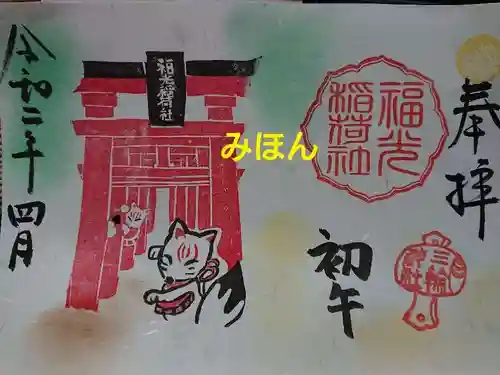 奉拝
福光
稲荷社
初午
三輪
福光稲荷社
みほん
令和二年四月